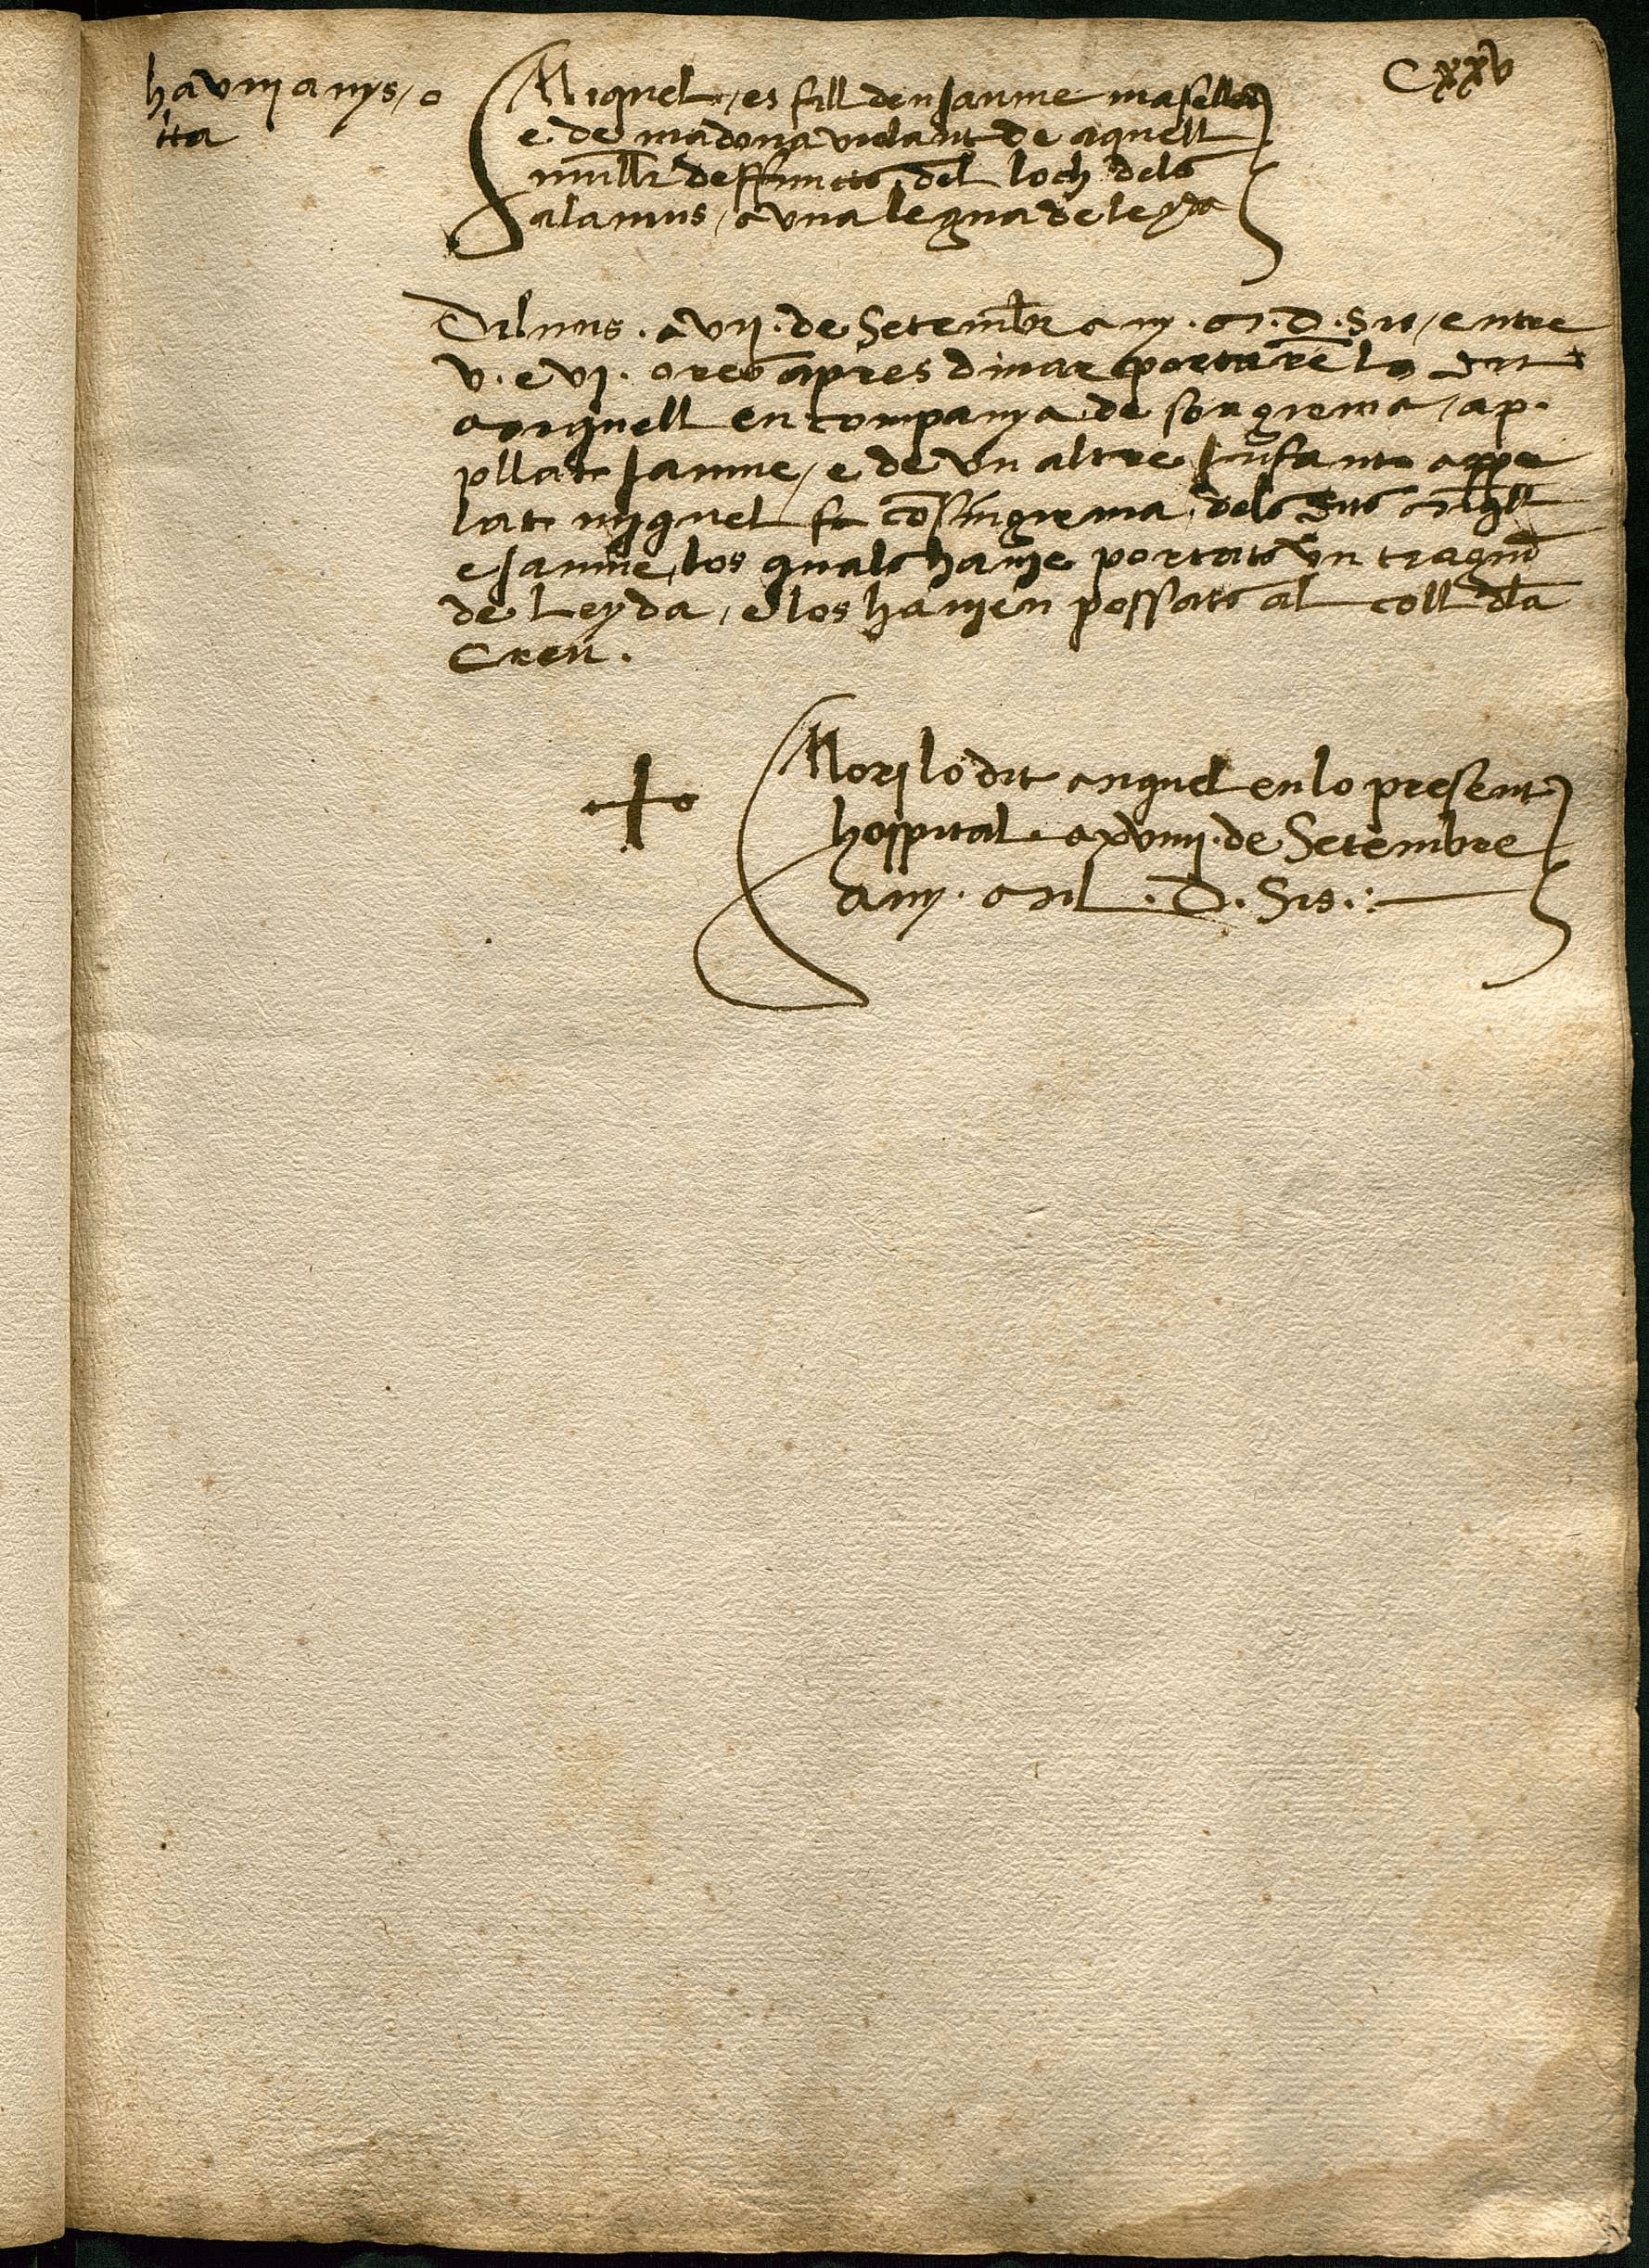 Cxxv
ha viij anys / o
Miquel / es fill den Jaume
e de madona violant de aquell
mullr deffuncts del loch dels
alamus / a una legua de leyda
Dilluns . a vij . de Setembr any . M . D . Sis / entre
v . e vj . ores apres dinar portaren lo dit
Miquell en companya de son germa / ap
pllat Jaume / e de un altre Infant appe
lat Miquel cosin germa dels dits Miqll
e Jaume los quals havie portats un
de Leyda / e los havien possats al coll dla
Creu .
+
Mori lo dit Miquel en lo present
hospital a xviiij . de Setembre
any . Mil . D . Sis .